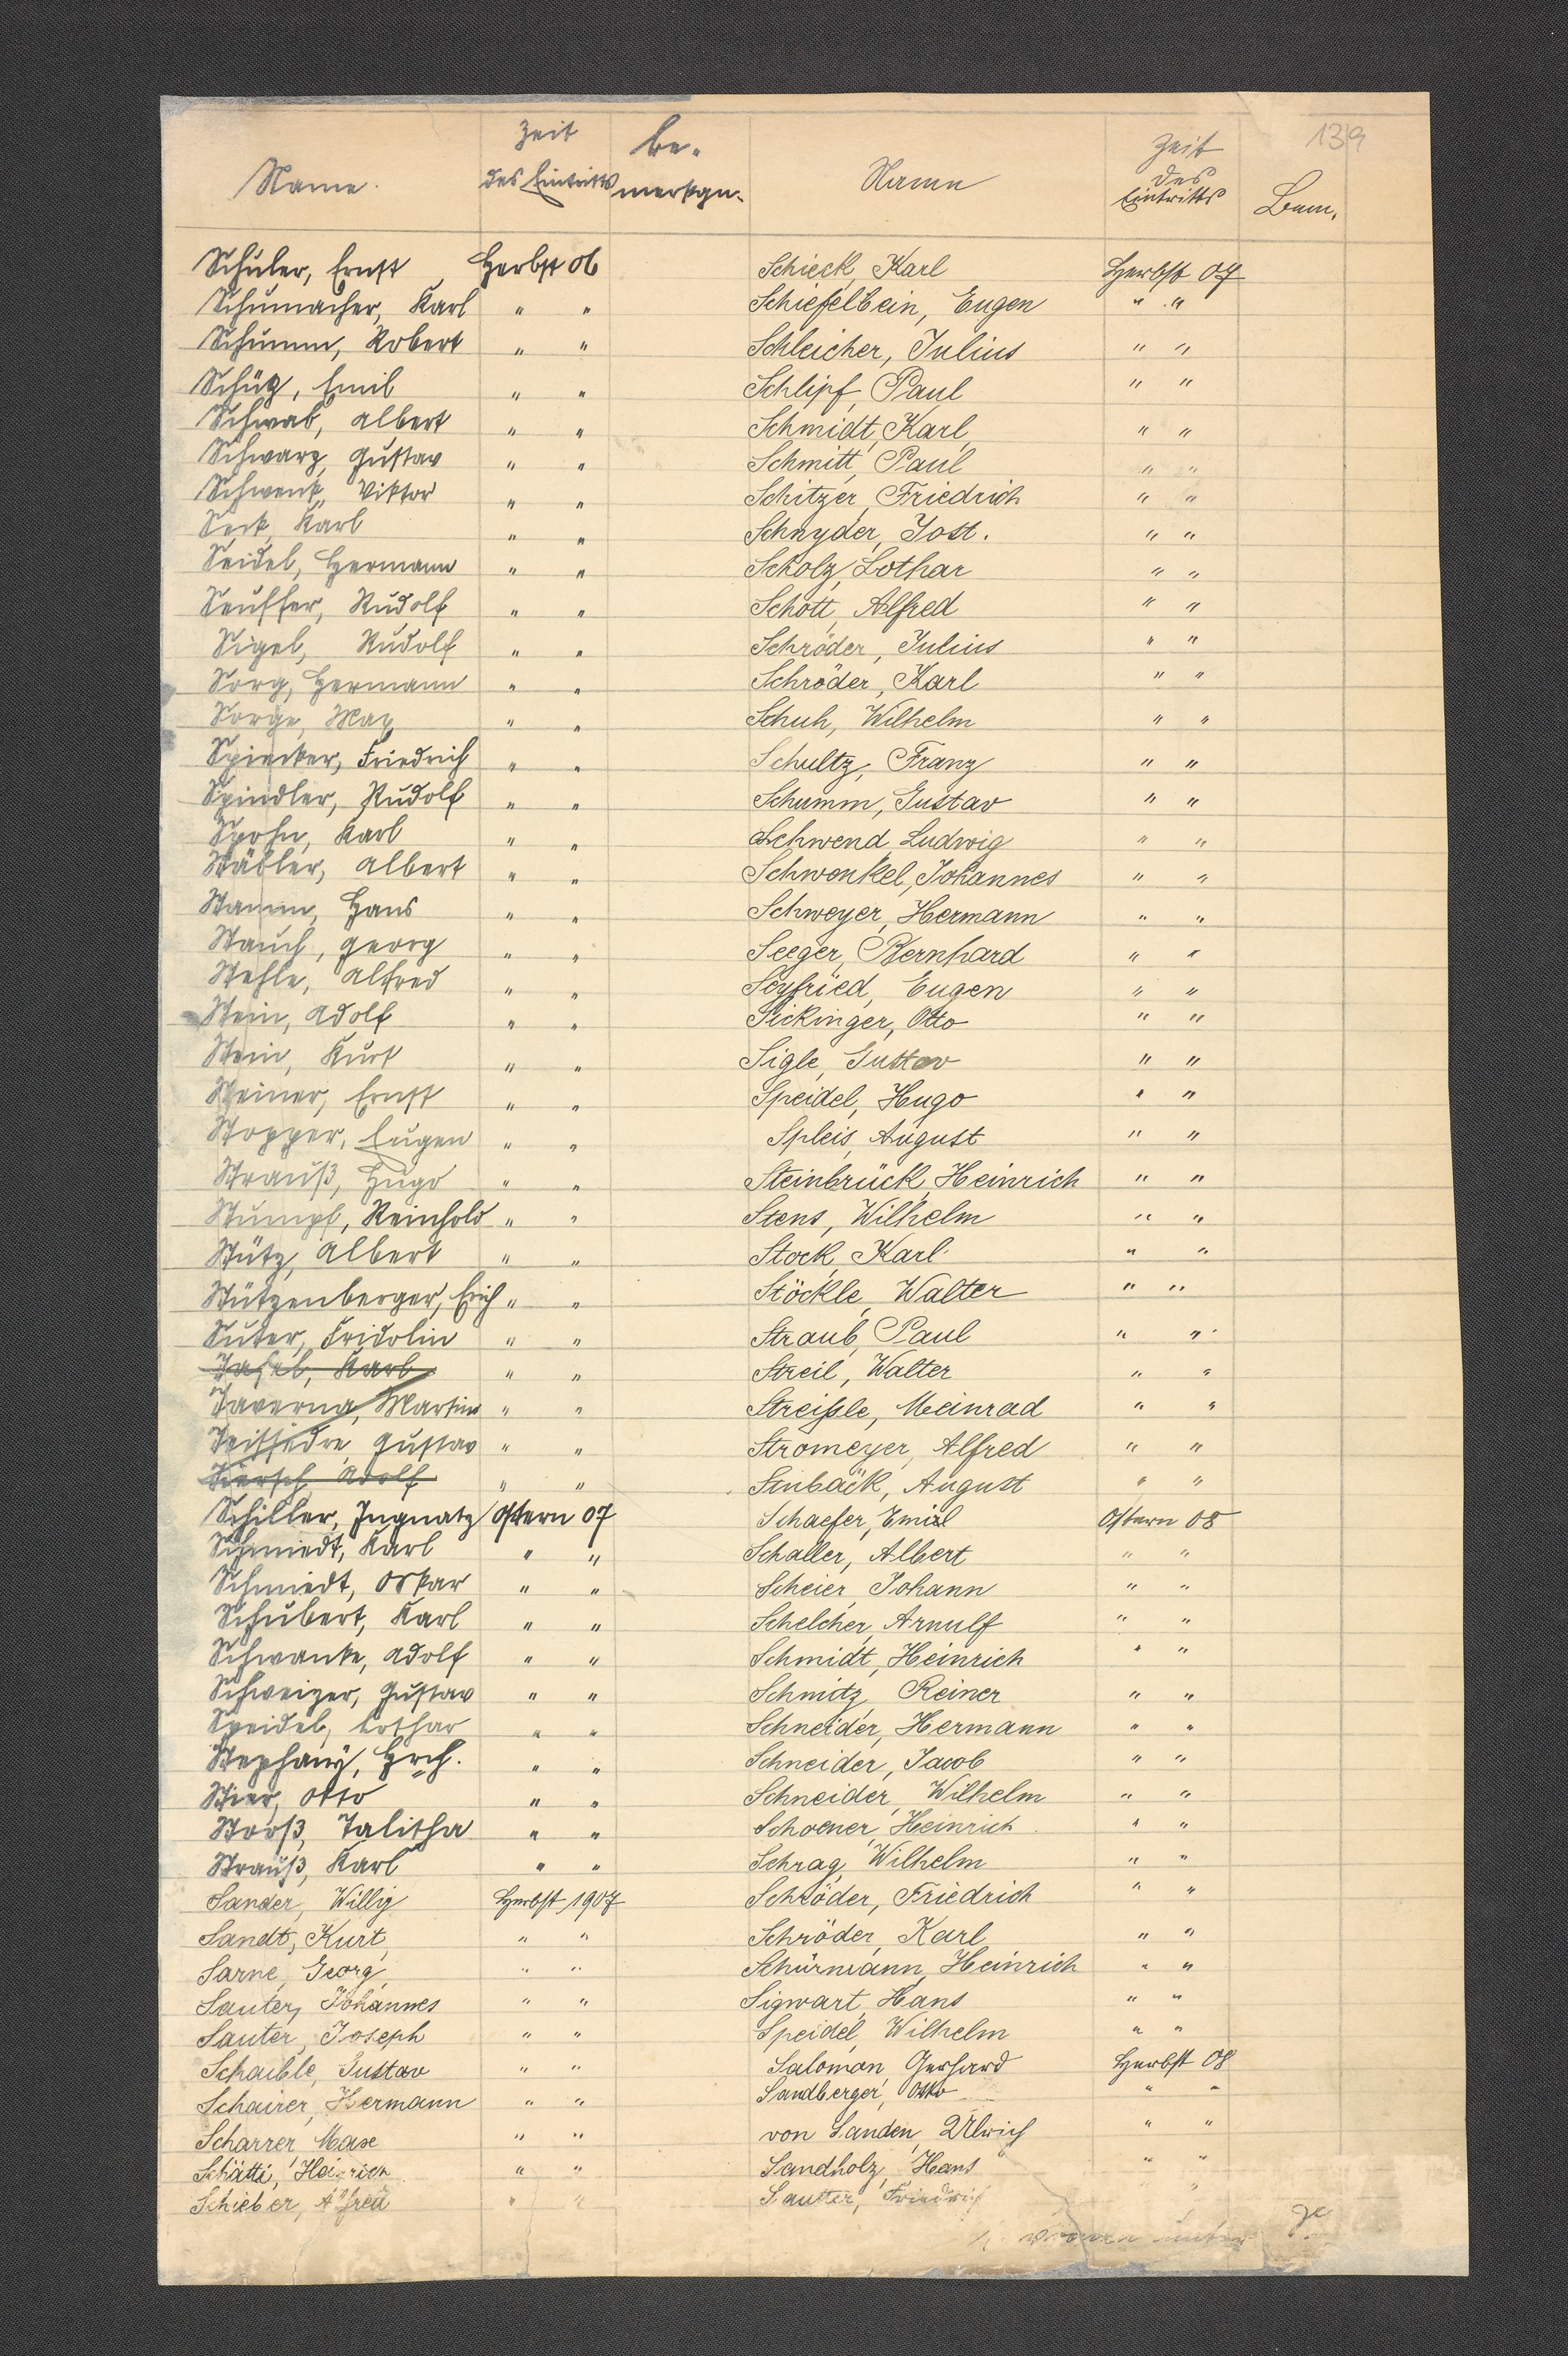 139
Name. Zeit des Eintritts Be- merkgn.
Schuler, Ernst Herbst 06
Schumacher, Karl " "
Schumm, Robert " "
Schütz, Emil " "
Schwab, Albert " "
Schwarz, Gustav " "
Schwenk, Viktor " "
Seck, Karl " "
Seidel, Hermann " "
Seuffer, Rudolf " "
Sigel, Rudolf " "
Sorg, Hermann " "
Sorge, Max " "
Spiecker, Friedrich " "
Spindler, Rudolf " "
Spohn, Karl " "
Stäbler, Albert " "
Stamm, Hans " "
Stauch, Georg " "
Stehle, Alfred " "
Stein, Adolf " "
Stein, Kurt " "
Steiner, Ernst " "
Stopper, Eugen " "
Strauß, Hugo " "
Stumpf, Reinhold " "
Stütz, Albert " "
Stützenberger, Erich " "
Suter, Fridolin " "
Tafel, Karl " "
Taverna, Martin " "
Teissedre, Gustav " "
Tiersch, Adolf " "
Schiller, Ingnatz Ostern 07
Schmiedt, Karl " "
Schmiedt, Oskar " "
Schubert, Karl " "
Schwanke, Adolf " "
Schweizer, Gustav " "
Speidel, Lothar " "
Stephany, Hrch. " "
Stier, Otto " "
Storß, Talitha " "
Strauß, Karl " "
Sander, Willy Herbst 1907
Sandt, Kurt " "
Sarne, Georg " "
Sauter, Johannes " "
Sauter, Joseph " "
Schaible, Gustav " "
Schairer, Hermann " "
Scharrer Max " "
Schätti, Heinrich " "
Schieber, Alfred " "
Name Zeit des Eintritts Bem.
Schieck, Karl Herbst 07
Schiefelbein, Eugen " "
Schleicher, Julius " "
Schlipf, Paul " "
Schmidt, Karl " "
Schmitt, Paul " "
Schitzer, Friedrich " "
Schnyder, Jost. " "
Scholz, Lothar " "
Schott, Alfred " "
Schröder, Julius " "
Schröder, Karl " "
Schuh, Wilhelm " "
Schultz, Franz " "
Schumm, Gustav " "
Schwend, Ludwig " "
Schwenkel, Johannes " "
Schweyer, Hermann " "
Seeger, Bernhard " "
Seyfried, Eugen " "
Sickinger, Otto " "
Sigle, Gustav " "
Speidel, Hugo " "
Spleis, August " "
Steinbrück, Heinrich " "
Stens, Wilhelm " "
Stock, Karl " "
Stöckle, Walter " "
Straub, Paul " "
Streil, Walter " "
Streißle, Meinrad " "
Stromeyer, Alfred " "
Stubäck, August " "
Schaefer, Emil Ostern 08
Schaller, Albert " "
Scheier, Johann " "
Schelcher, Arnulf " "
Schmidt, Heinrich " "
Schmitz, Reiner " "
Schneider, Hermann " "
Schneider, Jacob " "
Schneider, Wilhelm " "
Schoener, Heinrich " "
Schrag, Wilhelm " "
Schröder, Friedrich " "
Schröder, Karl " "
Schürmann, Heinrich " "
Sigwart, Hans " "
Speidel, Wilhelm " "
Salomon, Gerhard Herbst 08
Sandberger, Otto " "
von Sanden, Ulrich " "
Sandholz, Hans " "
Sautter, Friedrich " "